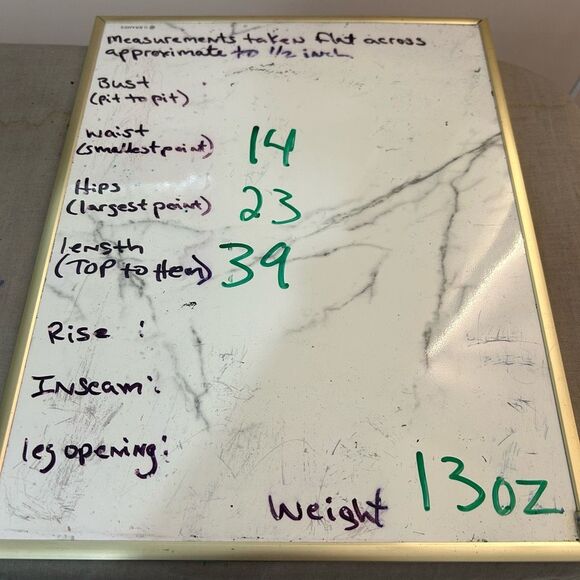 measurements taken flat across
approximate to 1/2 inch
Bust
(pit to pit)
waist
(smallest point) 14
Hips
(largest point) 23
length
(TOP to Hem) 39
Rise :
Inseam:
leg opening:
Weight 13oz